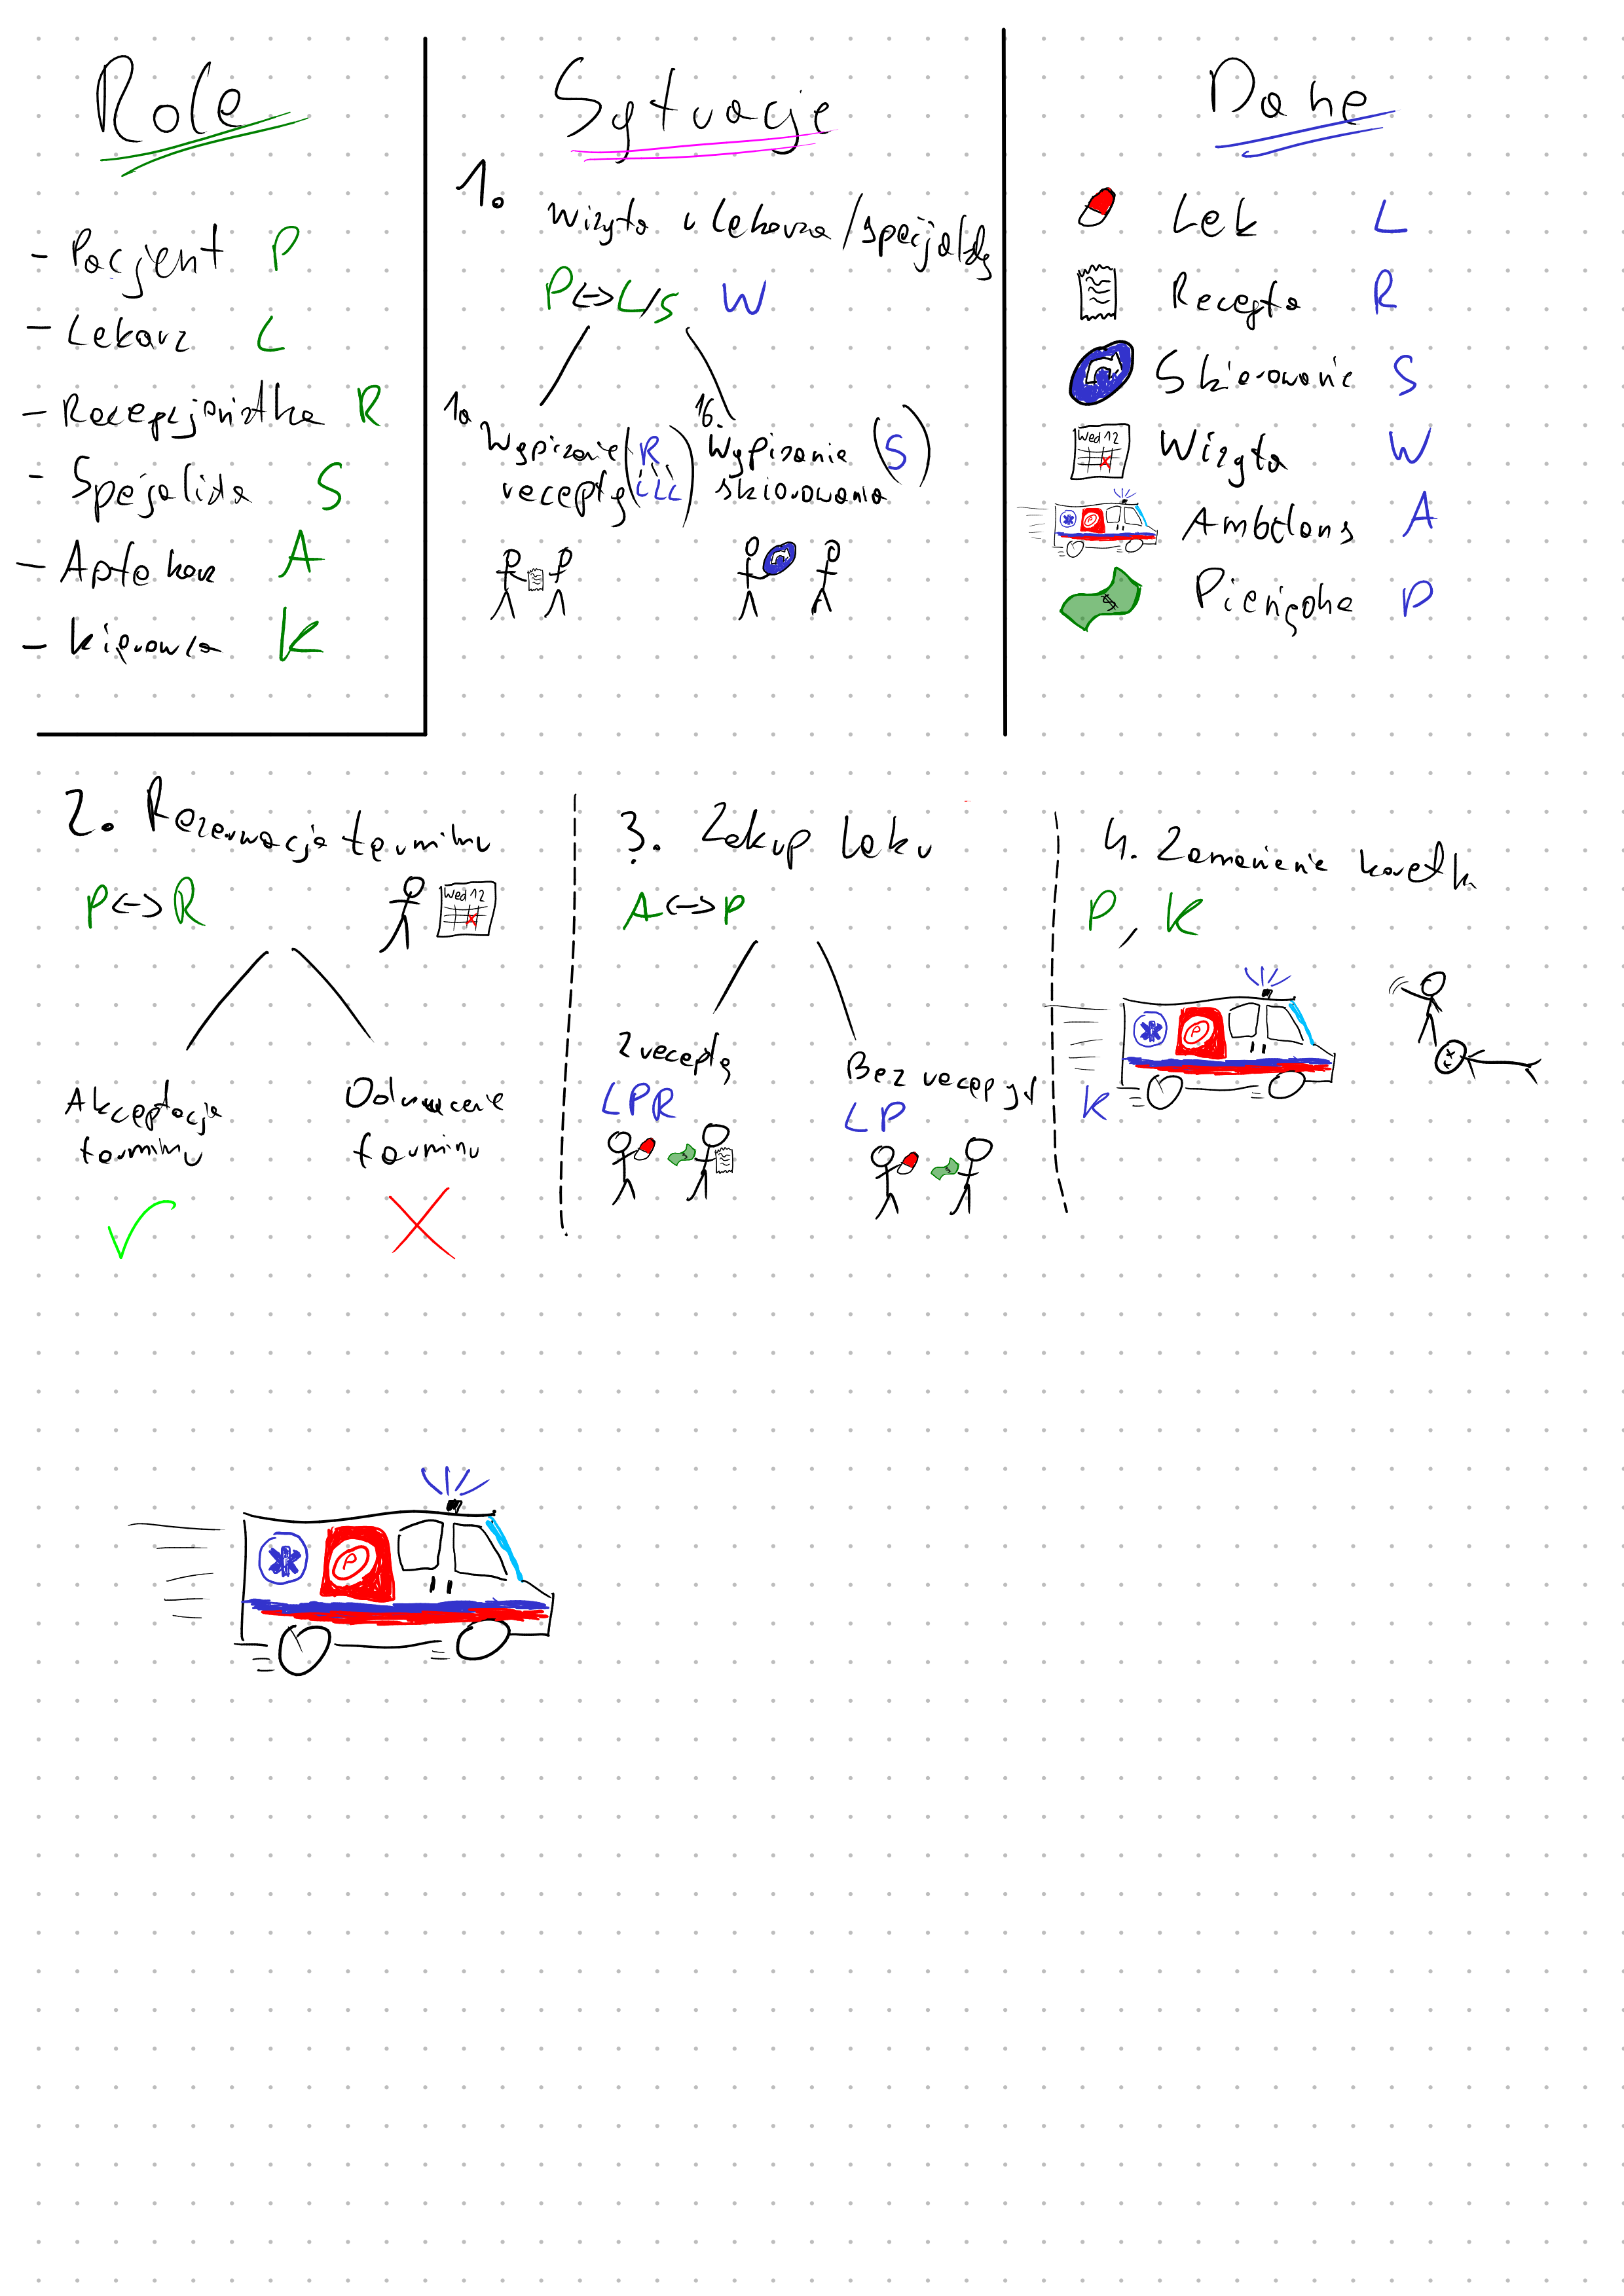 Role
- Pacjent P
- Lekarz L
- Recepcjonistka R
- Spejalista S
- Aptekarz A
- Kierowca K
Sytuacje
1.
Wizyta u lekarza/specjalisty
P<->L/S W
1a.
Wypisanie
recepty
(R
LLL)
1b.
Wypisanie
skierowania
(S)
Dane
Lek L
Recepta R
Skierowanie S
Wed 12
Wizyta W
P
Ambulans A
Pieniądze P
2. Rezerwacja terminu
P<->R
Wed 12
Akceptacja
terminu
Odrzucenie
terminu
3. Zakup leku
A<->P
Z receptą
LPR
Bez recepty
LP
4. Zamówienie karetki
P, K
P
K
P